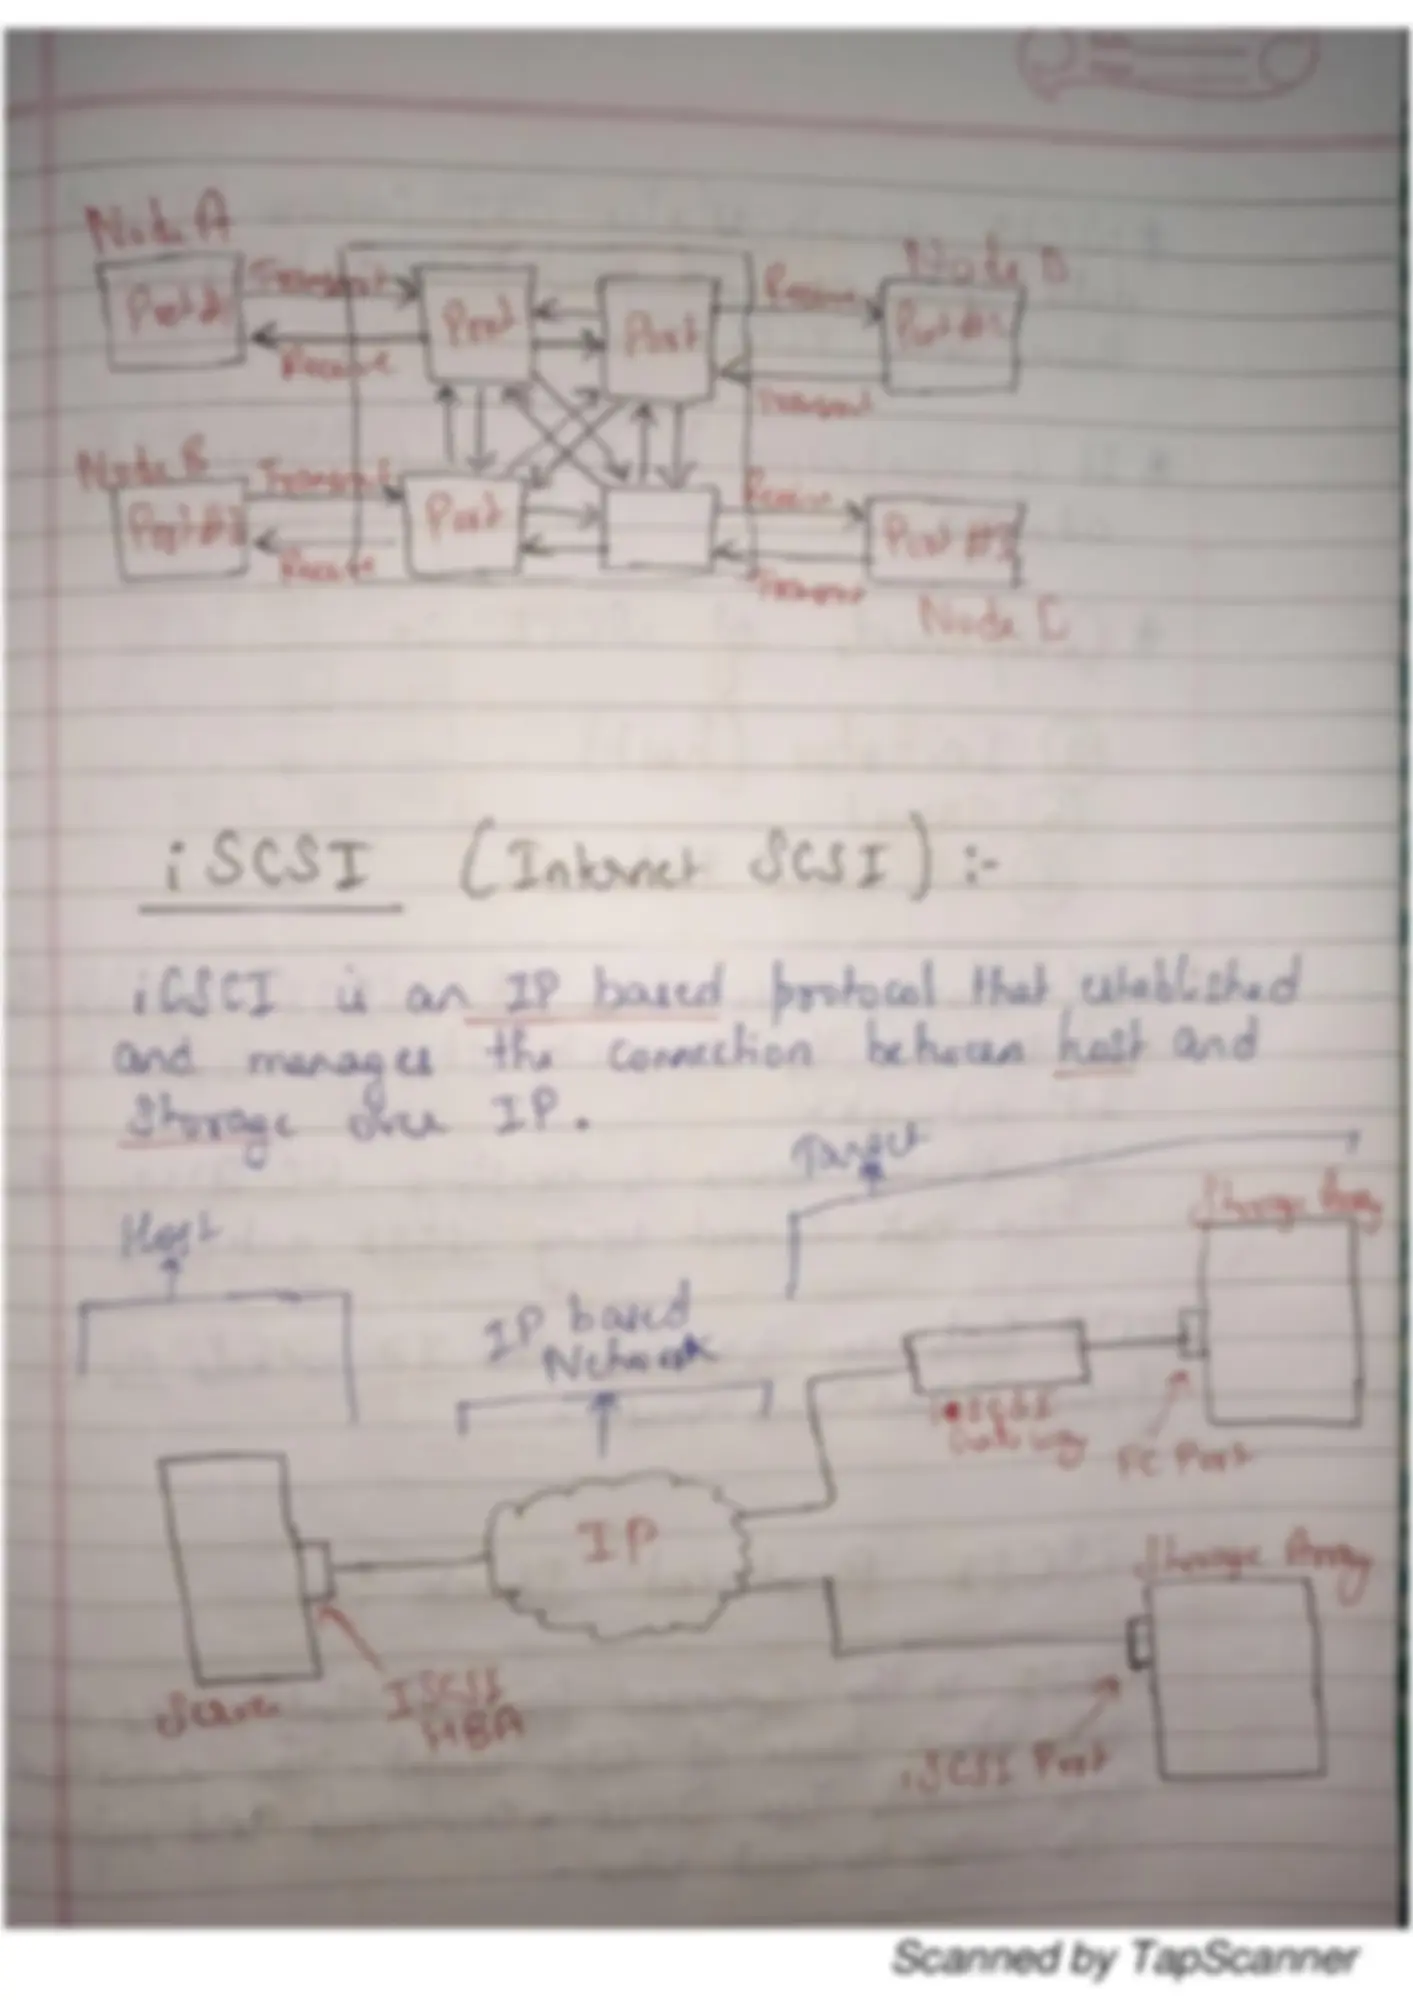 Node A
Node D
Transmit
Port
Port
Receive
Port #
Receive
Transmit
Node B
Transmit
Port
Receive
Port #
Receive
Transmit
Node C
iSCSI (Internet SCSI) :-
iCSCI is an IP based protocol that established
and manages the connection between host and
Storage over IP.
Target
Storage Array
Host
IP based
Network
iSCSI
Gateway
FC Port
IP
Storage Array
Server
ISCSI
HBA
iSCSI Port
Scanned by TapScanner